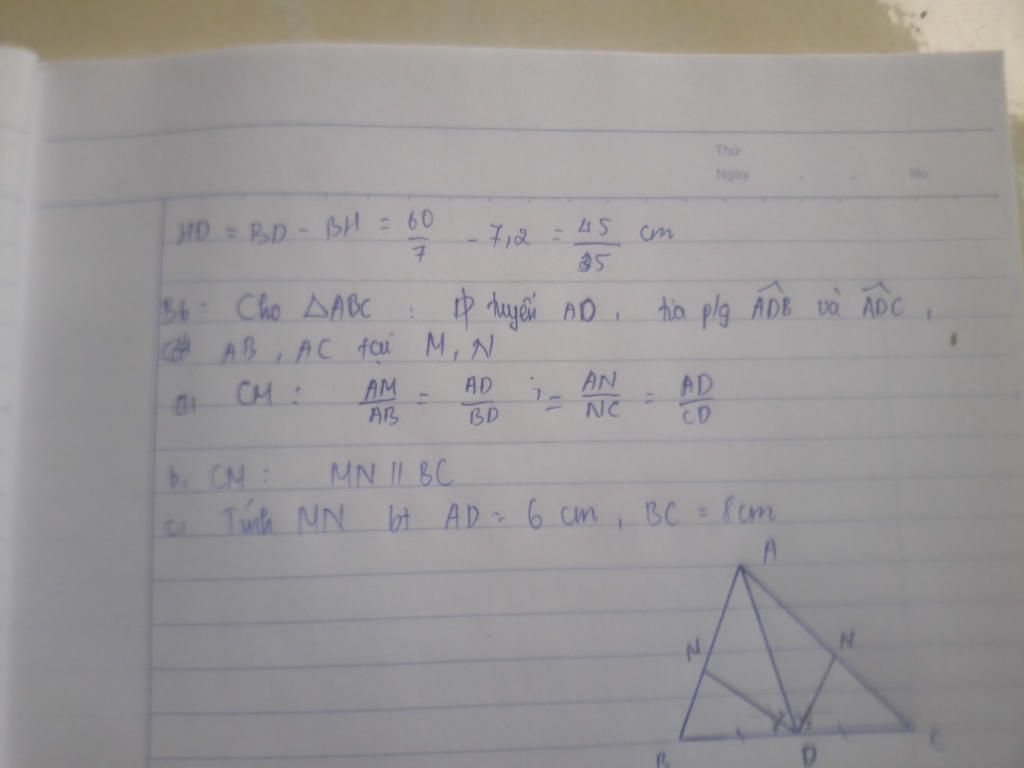 Thứ
Ngày . . No.
HD = BD - BH = 60/7 - 7,2 = 45/35 cm
B6: Cho △ABC : tuyến AD, tia p/g ADB và ADC,
cắt AB, AC tại M, N
a, CM: AM/AB = AD/BD ; = AN/NC = AD/CD
b, CM: MN || BC
c, Tính MN bt AD = 6 cm, BC = 8cm
A
M N
B D C